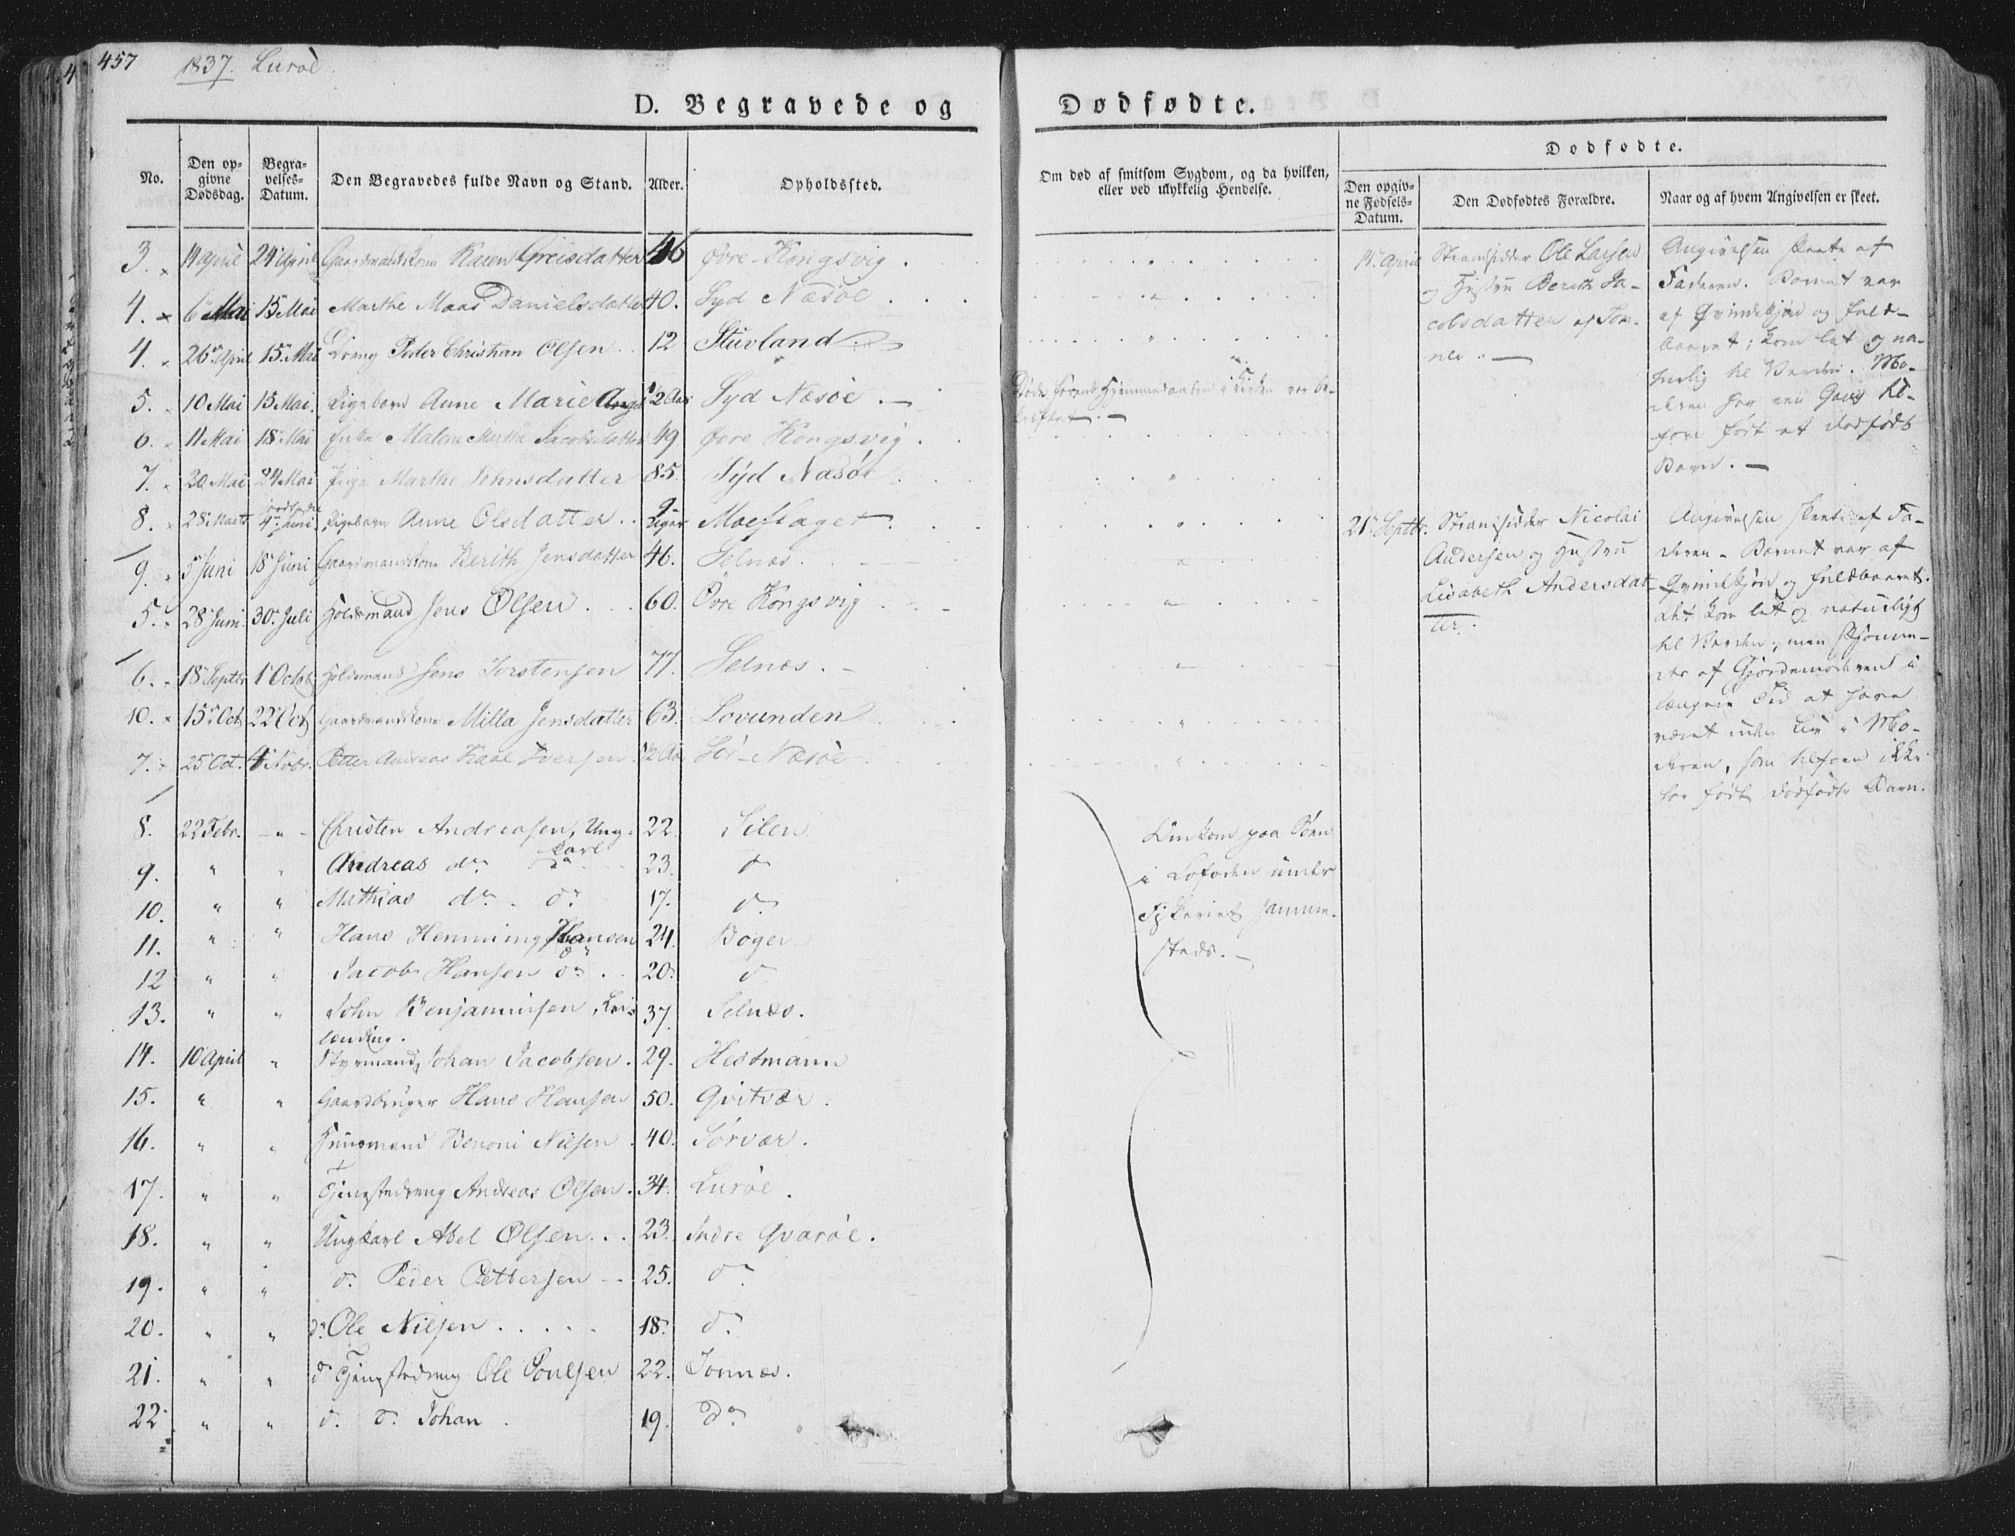 457 1837. Lurøe.
D. Begravede og Dødfødte.
No. Den opgivne Dødsdag. Begravelses-Datum. Den Begravedes fulde Navn og Stand. Alder. Opholdssted. Om død af smitsom Sygdom, og da hvilken, eller ved ulykkelig Hendelse. Dødfødte.
Den opgivne Fødsels-Datum. Den Dødfødtes Forældre. Naar og af hvem Angivelsen er skeet.
3. 14 April 24 April Gaardmandskone Karen Greisdatter 46 Øvre Kongsvig.
4. 6 Mai 15 Mai Marthe Maas Danielsdatter 40. Syd Næsøe
4. 26 April 15 Mai Dreng Peder Christian Olsen 12 Stuvland
5. 10 Mai 15 Mai Pigebarn Anne Marie 1/2 Aar Syd Næsøe
6. 11 Mai 18 Mai Enke Malene Marthe Jacobsdatter 49 Øvre Kongsvig.
7. 20 Mai 24 Mai Pige Marthe Johnsdatter 85. Syd Næsøe
8. 28 Marts 4 Juni Pigebarn Anne Olsdatter 9 Uger Moeflaget
9. 5 Juni 18 Juni Gaardmandskone Berith Jensdatter 46. Selnæs.
5. 28 Juni 30 Juli Holdsmand Jens Olsen 60. Øvre Kongsvig
6. 18 Septbr 1 Octob. Holdsmand Jens Torstensen 77. Selnæs.
10. 15 Oct 22 Oct Gaardmandskone Milla Jensdatter 63. Lovunden
7. 25 Oct. 4 Novbr. Petter Andreas Kaal Iversen 1/2 Aar Sør-Næsøe
8. 22 Febr. - " - Christen Andreasen, Ungkarl 22. Silen
9. " " Andreas do do 23. do
10. " " Mathias do - do 17. do
11. " " Hans Henning Hansen do 24. Bogen
12 " " Jacob Hansen do 20. do
13. " " John Benjaminsen, Leilænding. 37. Selnæs.
14. 10 April " Styrmand, Johan Jacobsen 29. Hestmann
15. " " Gaardbruger Hans Hansen 50. Qvitvær.
16. " " Huusmand Benoni Nilsen 40. Sørvær.
17. " " Tjenestedreng Andreas Olsen. 34. Lurøe.
18. " " Ungkarl Abel Olsen 23. Indre Qvarøe.
19. " " do. Peder Pettersen 25. do
20. " " do Ole Nilsen 18. do
21. " " do Tjenestedreng Ole Poulsen 22. Tonnæs.
22 " " do. do. Johan 19. do
Omkom paa Søen
i Lofoden under
Fiskeriet sammesteds.
14 April Strandsidder Ole Larsen
og Hustru Berith Ja-
cobsdatter af Ton-
nes.
Angivelsen skeete af
Faderen. Barnet var
af Qvindekjøn og fuld-
baaret; kom let og na-
turlig til Verden. Mo-
deren har een Gang til-
forn født et dødfødt
Barn.
21 Septbr. Strandsidder Nicolai
Andersen og Hustru
Lisabeth Andersdat-
ter.
Angivelsen skeete af Fa-
deren. Barnet var af
Qvindekjøn og fuldbaaret.
det kom let og naturligt
til Verden; men skjønne-
des af Gjordemoderen i
længere Tid at have
været uden Liv i Mo-
deren, som tilforn ikke
har født dødfødte Barn.